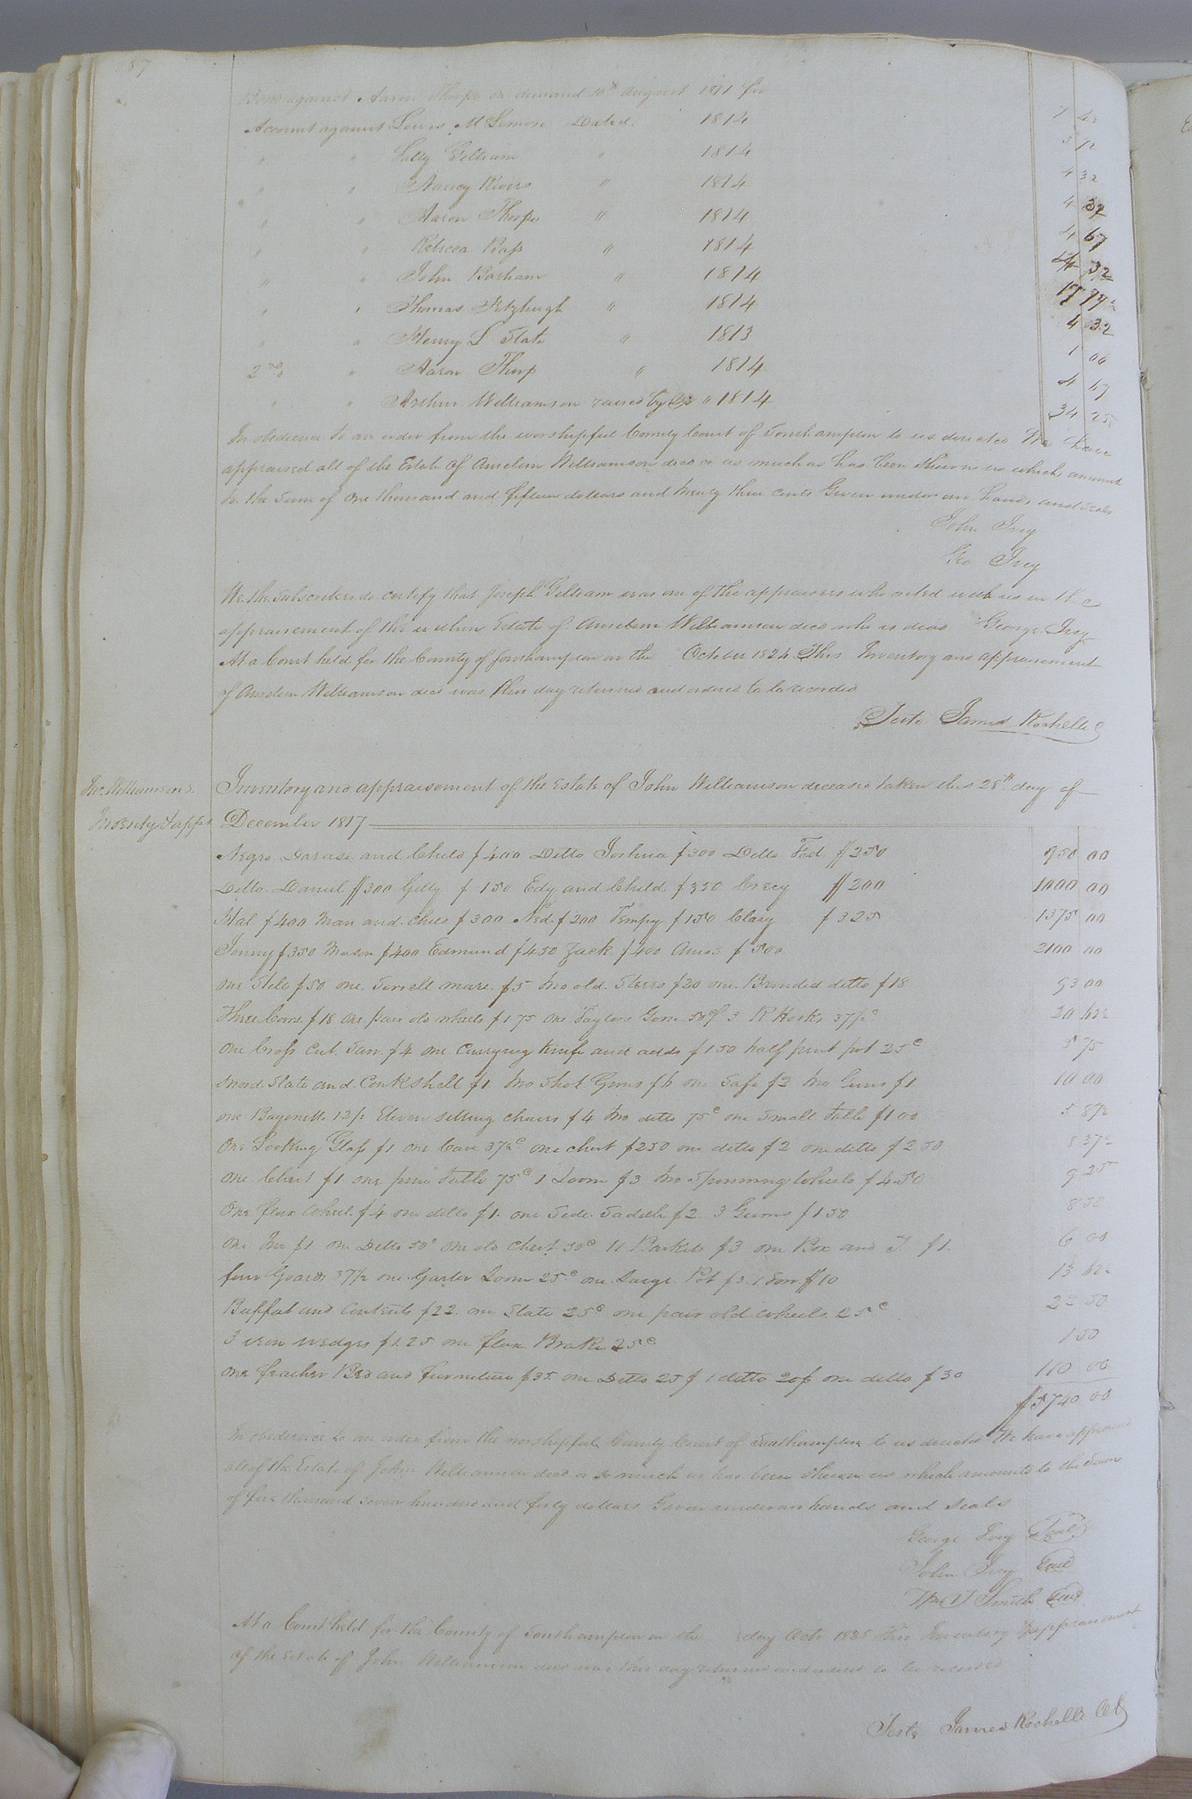 187
Bond against Aaron Thorpe on demand 10th August 1811 for
Account against Lewis McLemore Dated 1814 7
" " Gilliam " 1814 3 12
" " Nancy Rivers " 1814 4 32
" " Aaron Thorpe " 1814 4 32
" " Rebecca Bass " 1814 4 67
" " John Barham " 1814 4 32
" " Thomas Fitzhugh " 1814 17
" " Henry L State " 1813 4 32
2nd " Aaron Thorp " 1814 1 00
" " Arthur Williamson " 1814 4 67
34 25
In obedience to an order from the worshipful County Court of Southampton to us directed We have
appraised all of the Estate of Anselem Williamson decd or as much as has been shewn us which amount
to the Sum of One thousand and fifteen dollars and Ninety three cents Given under our hands and seals
John Ivey
Geo Ivey
We the Subscribers do certify that Joseph Gilliam was one of the appraisers who acted with us in the
appraisement of the within Estate of Anselem Williamson decd who is dead George Ivey
At a Court held for the County of Southampton on the October 1824 This Inventory and appraisement
of Anselem Williamson decd was this day returned and ordered to be recorded
Teste James Rochelle C
Jno. Williamson's
Inventy & appt
Inventory and appraisement of the Estate of John Williamson deceased taken this 28th day of
December 1817
Negro and Child $400 Ditto Joshua $300 Ditto Fed $250 950 00
Ditto Daniel $300 Gilly $150 Edy and Child $350 Crecy $200 1000 00
Hal $400 and Child $300 Ned $200 Tempy $150 Clary $325 1375 00
Jenny $350 Mason $400 Edmund $450 Zack $400 $500 2100 00
one $50 one Sorrell mare $5 two old Steers $20 one Branded ditto $18 93 00
Three Cows $18 one pair old wheels $1 75 one Taylors Goose 50c 3 R Hooks 37½c 20 62½
One Cross Cut Saw $4 one Currying Knife and adds $1 50 half pint pot 25c 5 75
Slate and Conkshell $1 two Shot Guns $6 one Safe $2 two Guns $1 10 00
one Bayonett 12½ Eleven sitting chairs $4 two ditto 75c one Small table $1 00 5 87½
One Looking Glass $1 one Case 37½c one chest $2 50 one ditto $2 one ditto $2 50 8 37½
one Chest $1 one pine Table 75c 1 Loom $3 two Spinning Wheels $4.50 9 25
One flax Wheel $4 one ditto $1. one Side Saddle $2 3 Gums $1 50 8 50
one $1 one Ditto 50c one old Chest 50c 11 Baskets $3 one Box and $1. 6 00
four Goards 37½ one Garter Loom 25c one Large Pot $3 1 $10 13 62½
Buffat and Contents $22. one Slate 25c one pair old wheels 25c 22 50
3 iron wedges $1.25 one flax Brake 25c 1 50
one feather Bed and furniture $35 one Ditto 25$ 1 ditto 20$ one ditto $30 110 00
$5740 00
In obedience to an order from the worshipful County Court of Southampton to us directed We have appraised
all of the Estate of John Williamson decd or so much as has been shewn us which amounts to the Sum
of five thousand seven hundred and forty dollars Given under our hands and seals
George Ivey Seal
John Ivey Seal
Smith Seal
At a Court held for the County of Southampton on the day Octr 1825 this Inventory & appraisement
of the Estate of John Williamson decd was this day returned and ordered to be recorded
Teste James Rochelle Clk